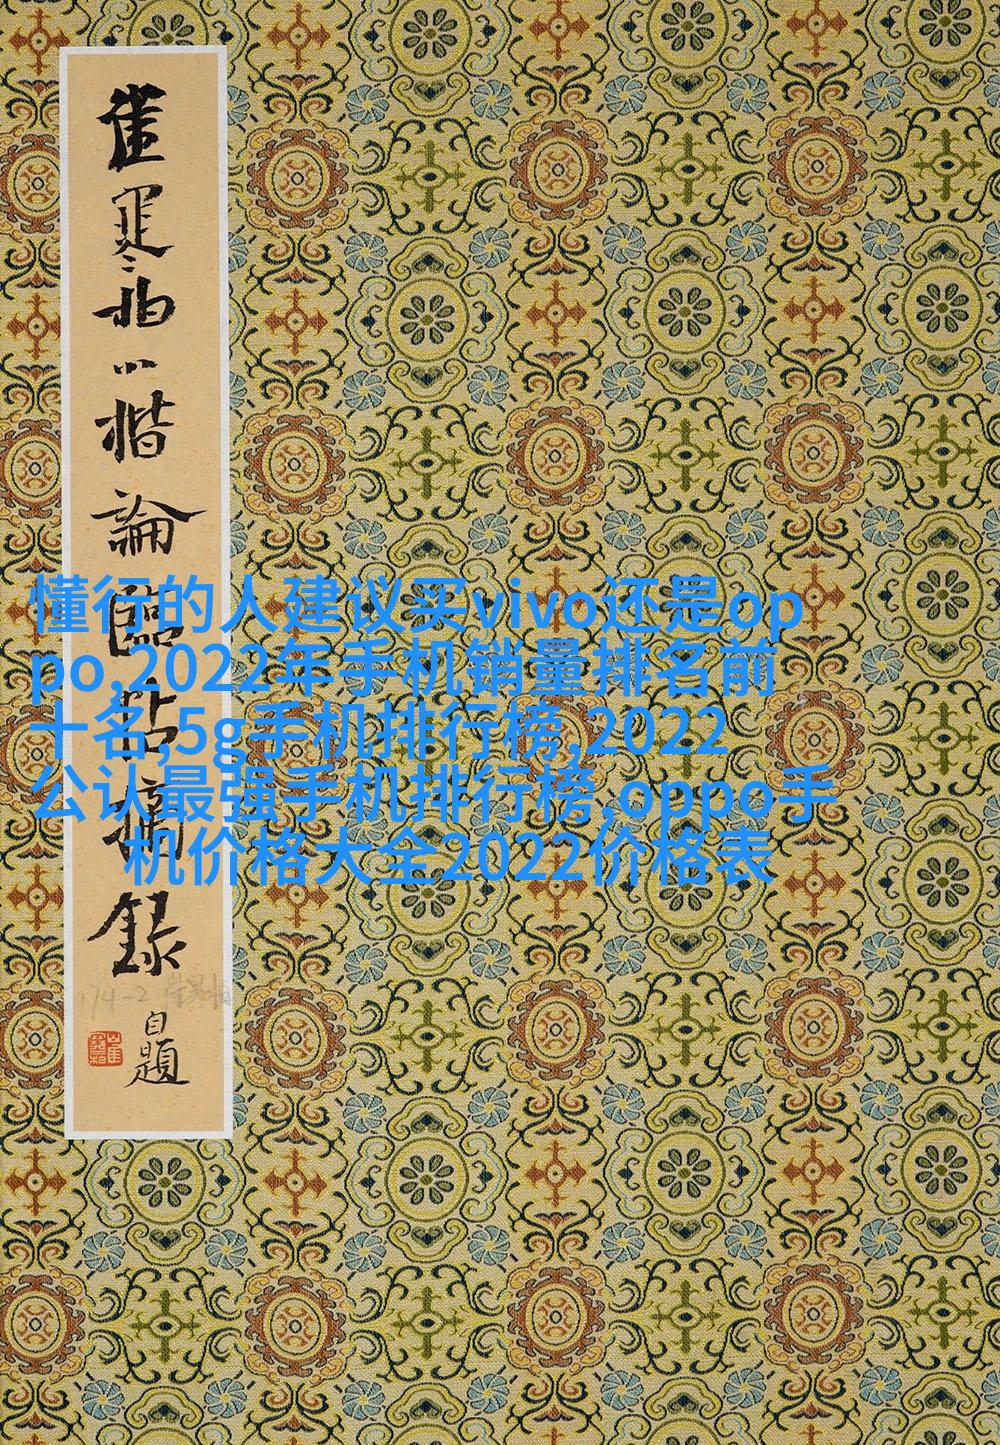 崔寔柏小楷論臨帖摘錄
自題
懂行的人建议买vivo还是op
po,2022年手机销量排名前
十名,5g手机排行榜,2022
公认最强手机排行榜,oppo手
机价格大全2022价格表